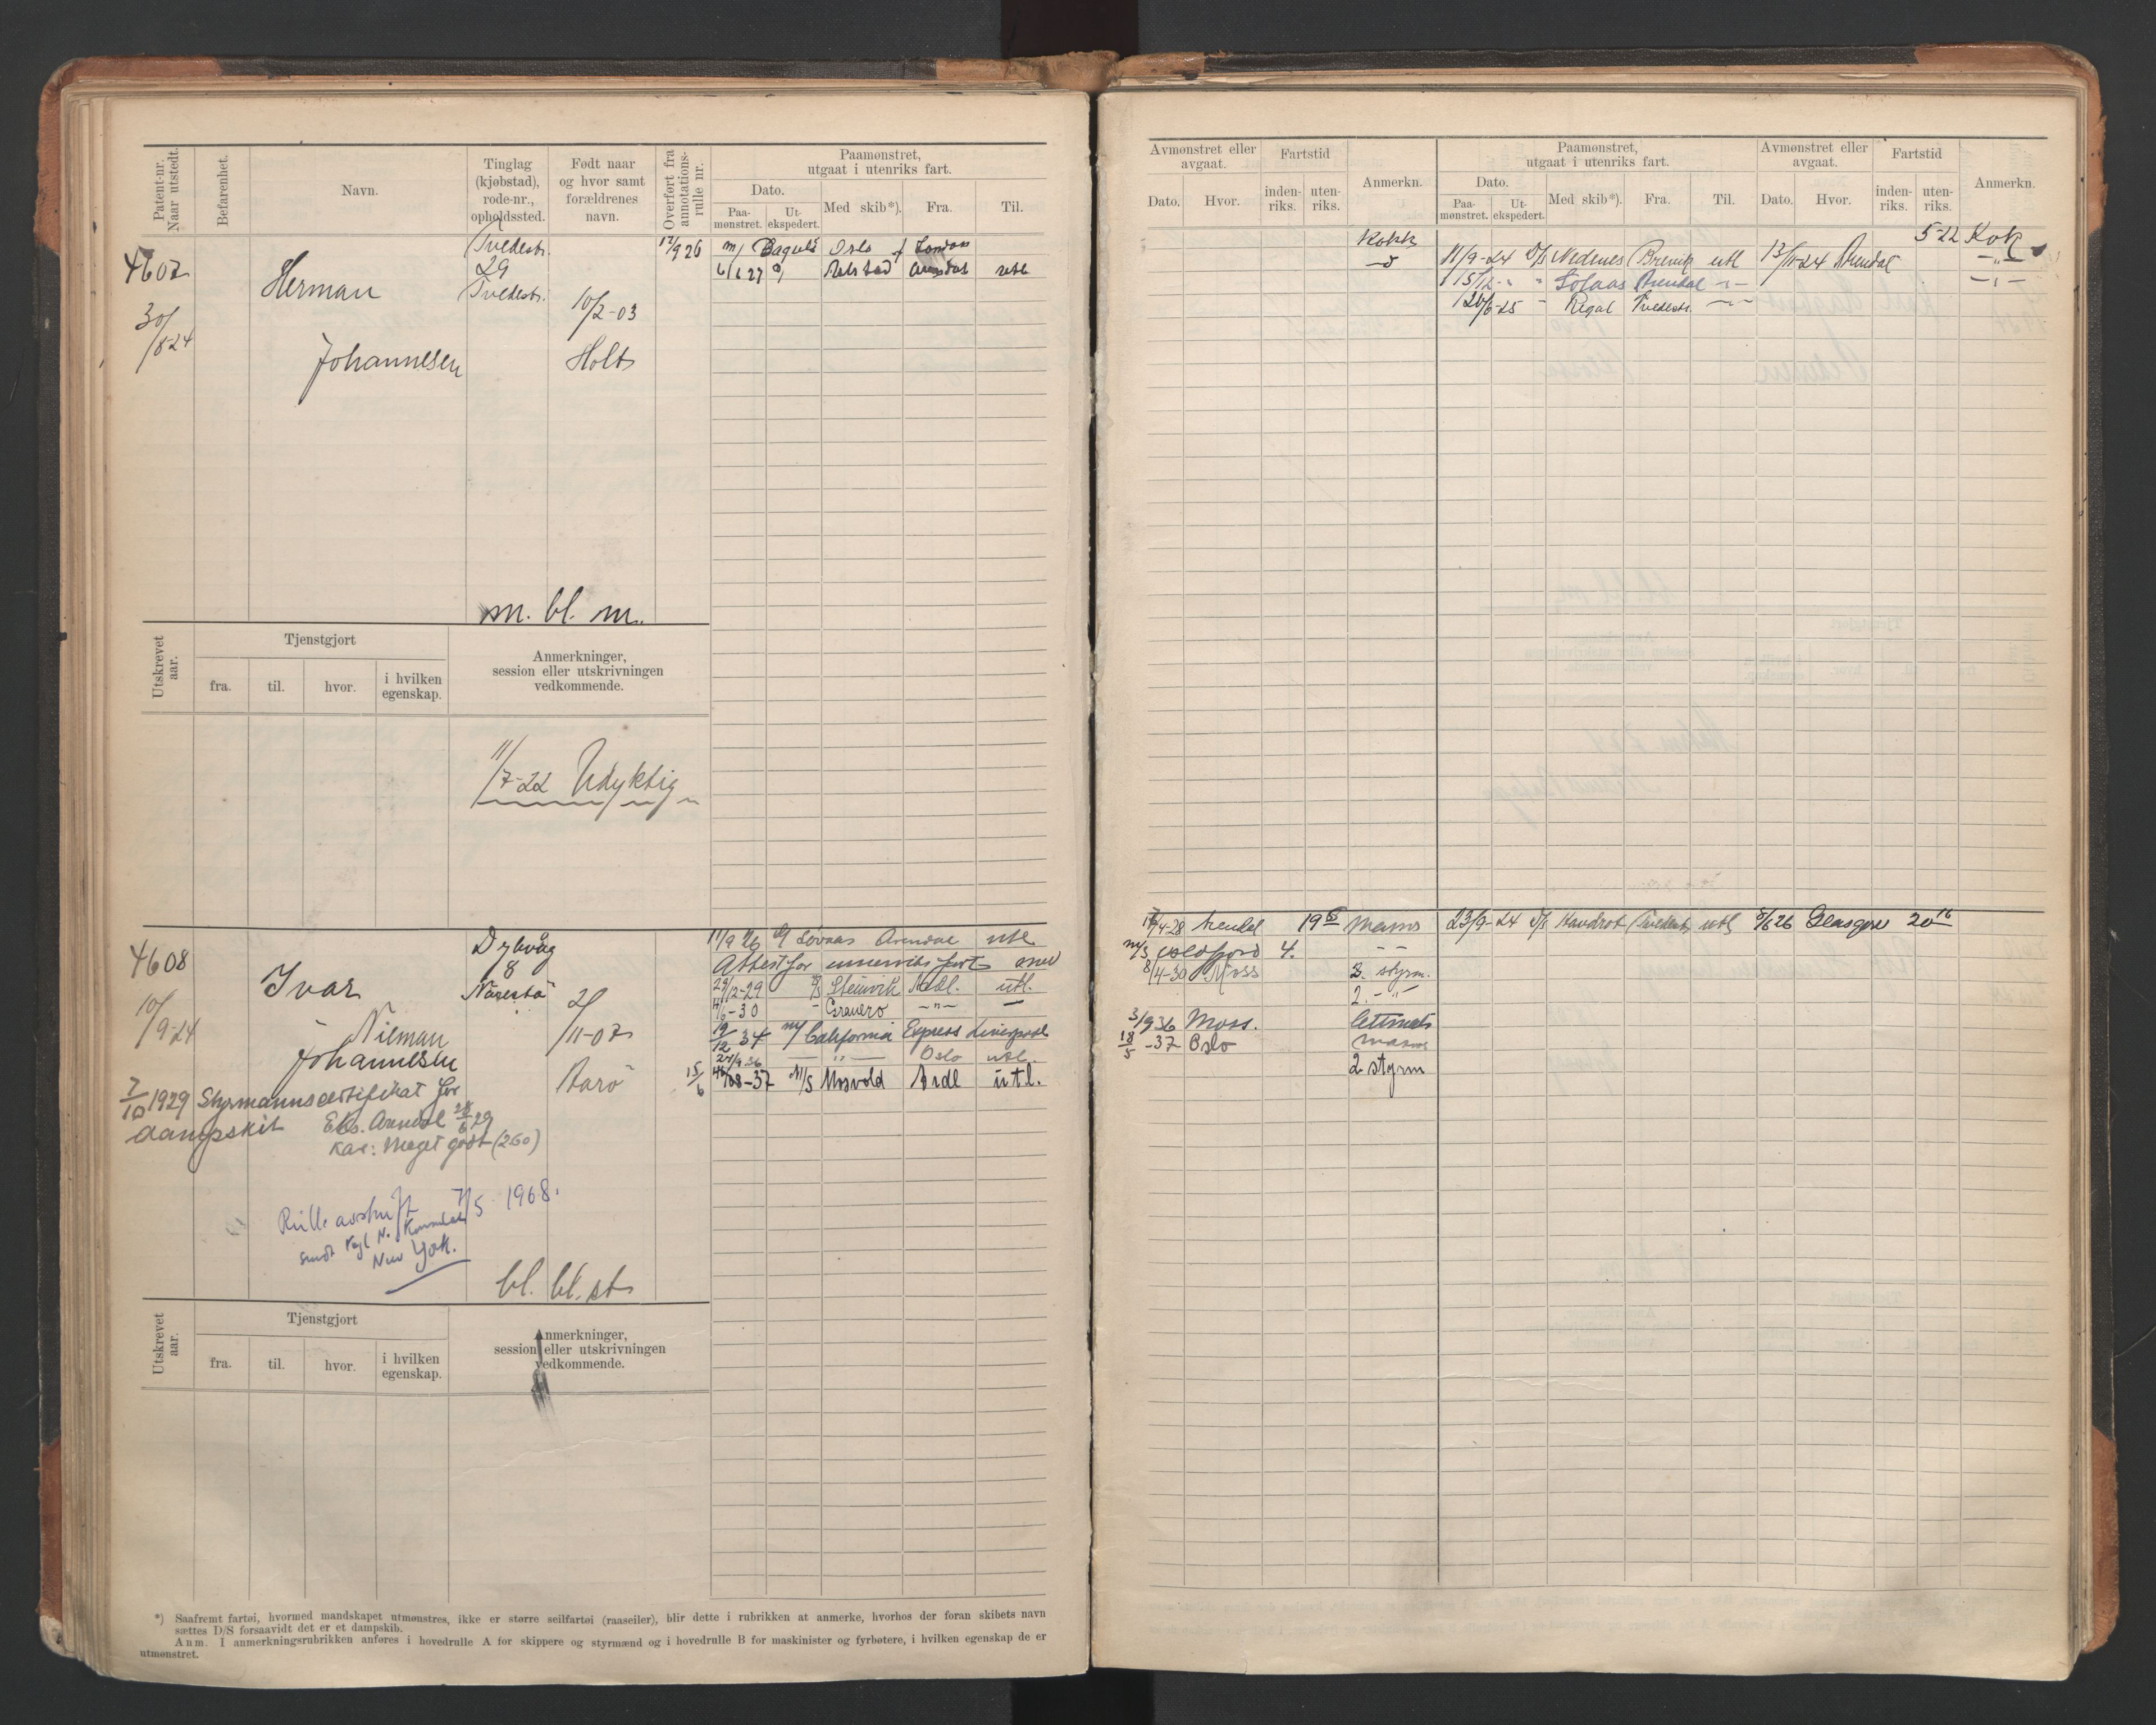 Patent-nr. Naar utstedt.
Befarenhet.
Navn.
Tinglag (kjøbstad), rode-nr., opholdssted.
Født naar og hvor samt forældrenes navn.
Overført fra annotations-rulle nr.
Paamønstret, utgaat i utenriks fart.
Dato.
Paa-mønstret.
Ut-ekspedert.
Med skib*).
Fra.
Til.
4607
30/8-24
Herman
Johannesen
Tvedestr.
29
Tvedestr.
10/2-03
Holt
Oslo London
Arendal utl
m. bl. m.
Utskrevet aar.
Tjenstgjort
fra.
til.
hvor.
i hvilken egenskap.
Anmerkninger, session eller utskrivningen vedkommende.
11/7-22 Udyktig
4608
10/9-24
Ivar
Nieman
Johannesen
Dybvåg
8
Narestø
2/11-07
Barø
11/9 26 Lovaas Arendal utl
Attest for innenriks fart med
29/12-29 Steinvik Ardl. utl.
-30
19/12 34 m/ California Express Liverpool
Oslo utl.
15/6
-37 M/S Mosvold Ardl utl.
7/10 1929 Styrmannscertifikat for
dampskib Eks. Arendal 29
Kar: Meget godt (260)
Rulleavskrift 7/5 1968.
sendt Kgl N. Konsulat
New York.
bl. bl. st
Utskrevet aar.
Tjenstgjort
fra.
til.
hvor.
i hvilken egenskap.
Anmerkninger, session eller utskrivningen vedkommende.
*) Saafremt fartøi, hvormed mandskapet utmønstres, ikke er større seilfartøi (raaseiler), blir dette i rubrikken at anmerke, hvorhos der foran skibets navn
sættes D/S forsaavidt det er et dampskib.
Anm. I anmerkningsrubrikken anføres i hovedrulle A for skippere og styrmænd og i hovedrulle B for maskinister og fyrbøtere, i hvilken egenskap de er
utmønstret.
Avmønstret eller avgaat.
Dato.
Hvor.
Fartstid
inden-riks.
uten-riks.
Anmerkn.
Paamønstret, utgaat i utenriks fart.
Dato.
Paa-mønstret.
Ut-ekspedert.
Med skib*).
Fra.
Til.
Avmønstret eller avgaat.
Dato.
Hvor.
Fartstid
inden-riks.
uten-riks.
Anmerkn.
Kokk
5-22 Kok
11/9-24 D/S Nedenes Brevik utl 13/11-24 Arendal
15/12 Arendal
-25 Regal Tvedestr.
Arendal 19 23/9-24 D/S Tvedestr utl Glasgow 20
M/S 4.
8/4-30 Moss 3. styrm.
2.
3/9 36 Moss. Lettmatr
18/5 -37 Oslo matros
2 styrm